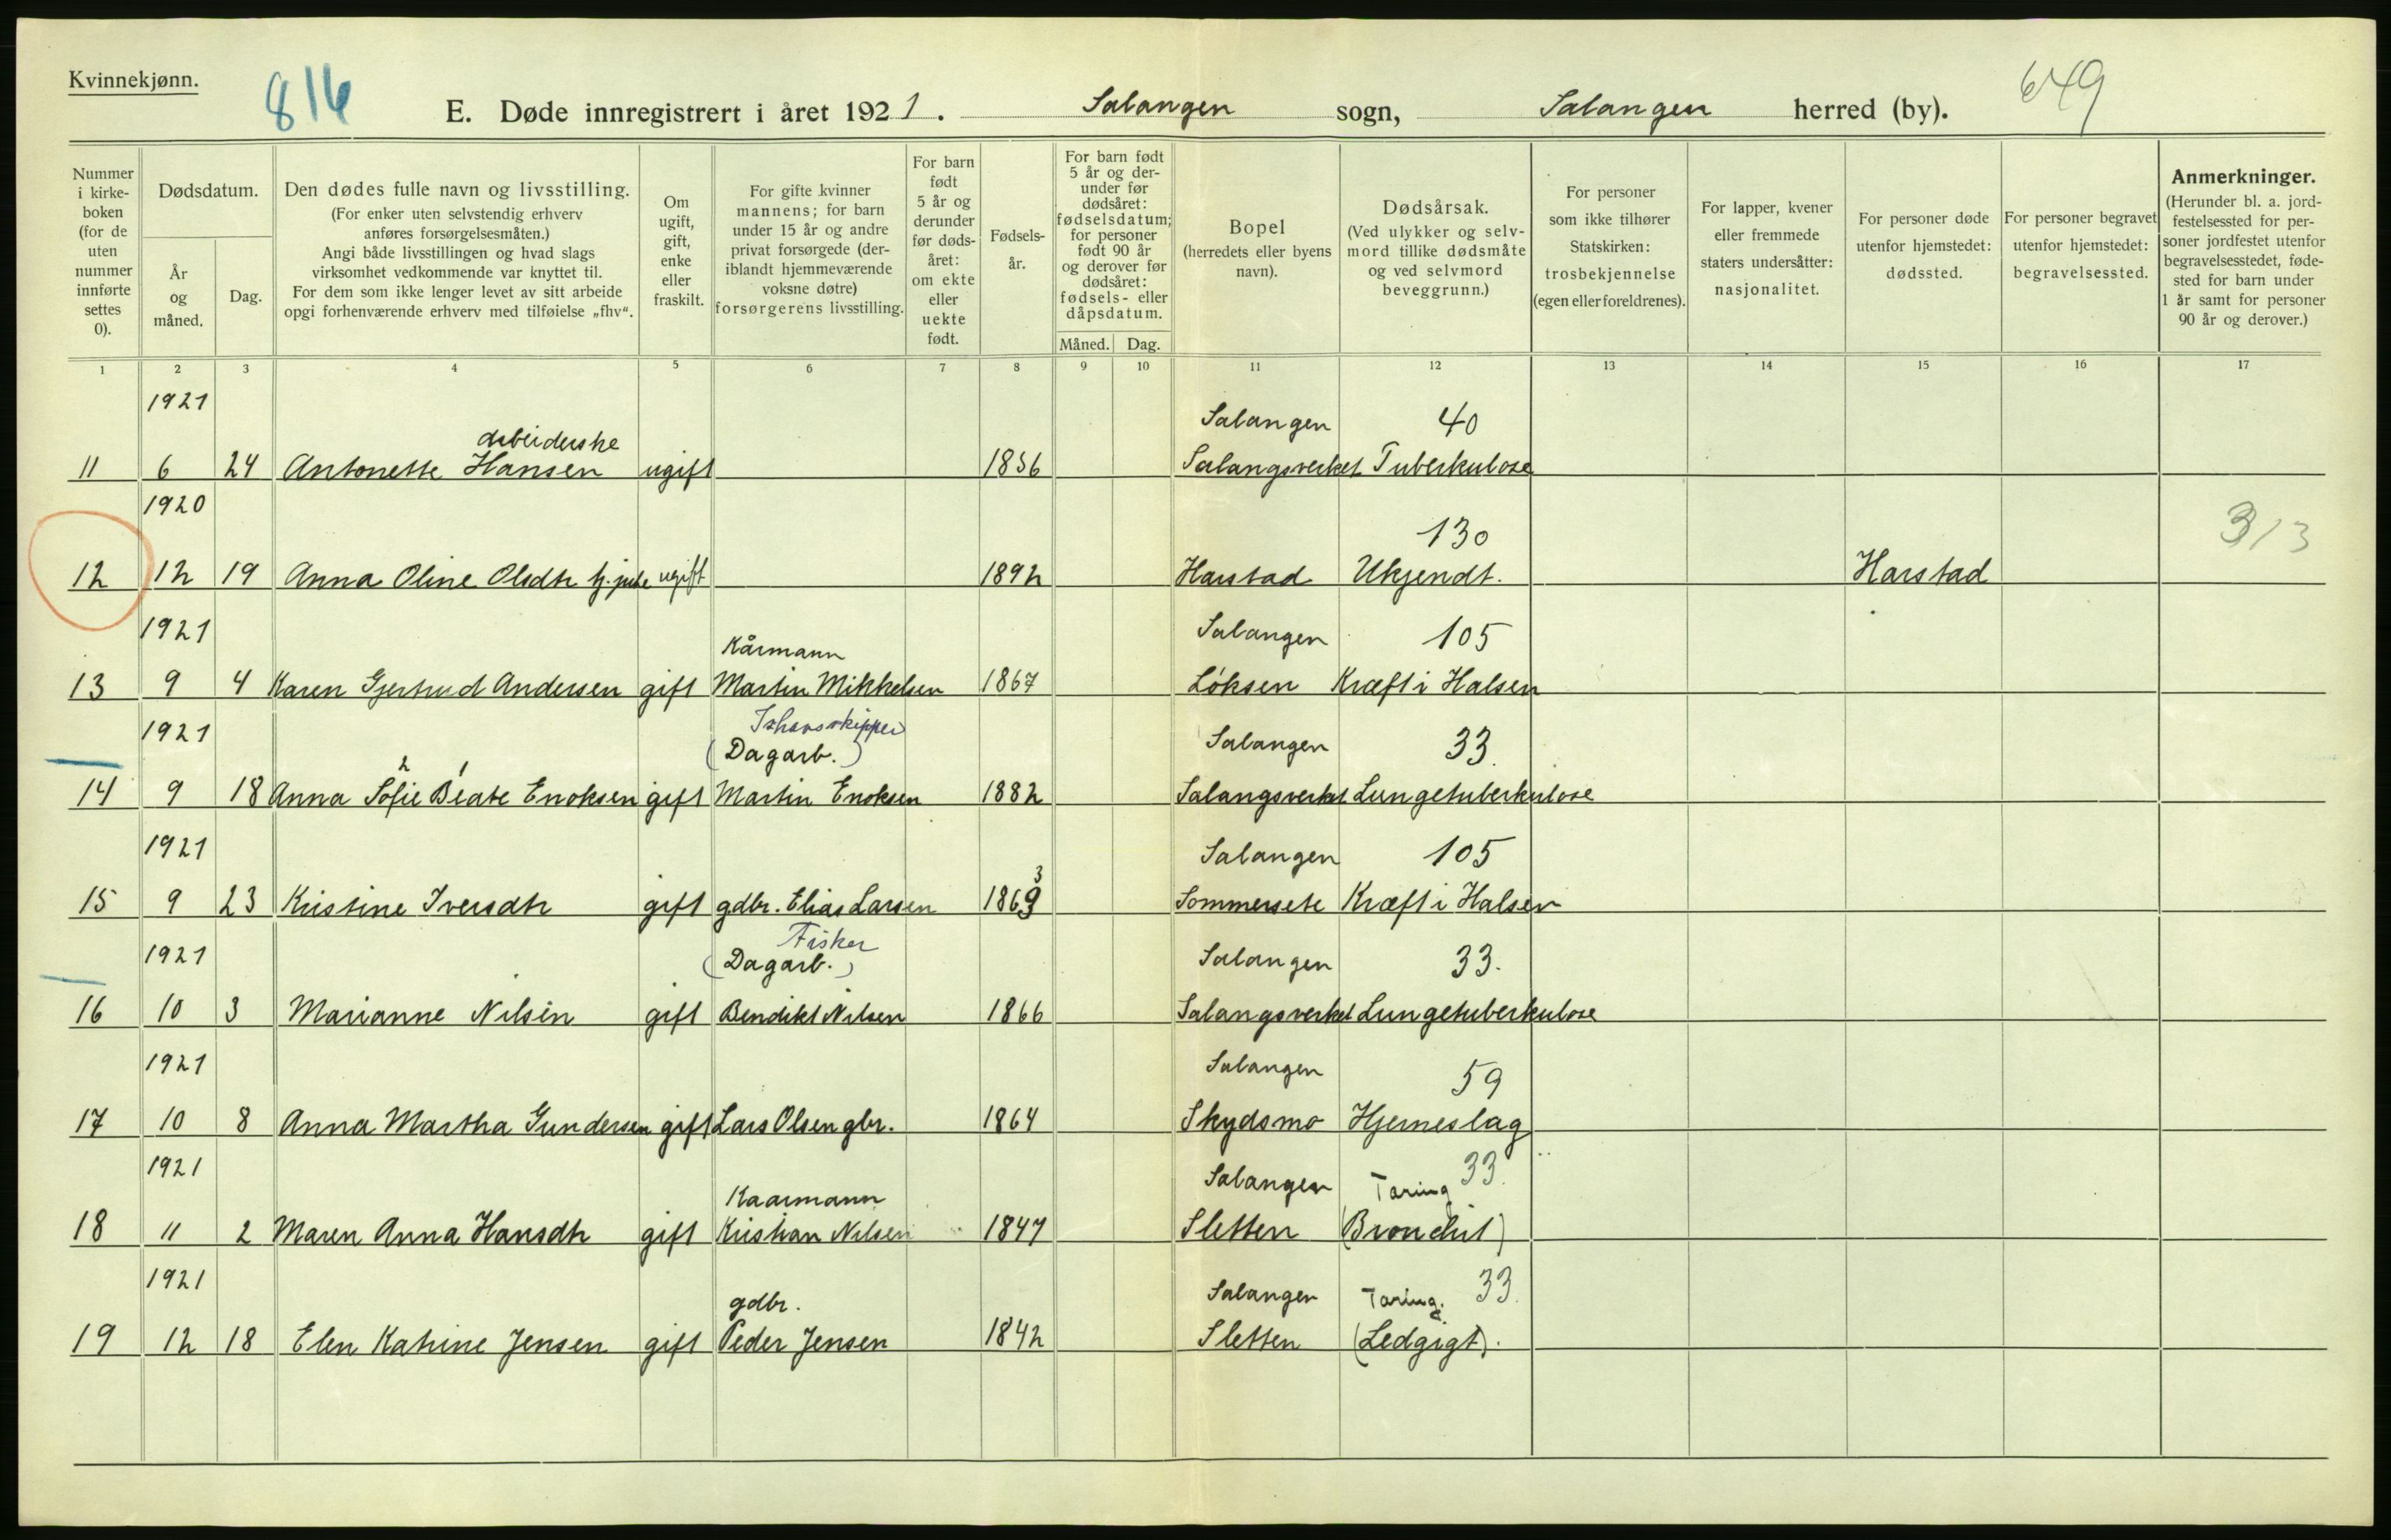 Kvinnekjønn.
816
E. Døde innregistrert i året 1921. Salangen sogn, Salangen herred (by).
649
Nummer i kirke-boken (for de uten nummer innførte settes 0).
Dødsdatum.
År og måned.
Dag.
Den dødes fulle navn og livsstilling.
(For enker uten selvstendig erhverv
anføres forsørgelsesmåten.)
Angi både livsstillingen og hvad slags
virksomhet vedkommende var knyttet til.
For dem som ikke lenger levet av sitt arbeide
opgi forhenværende erhverv med tilføielse „fhv“.
Om
ugift,
gift,
enke
eller
fraskilt.
For gifte kvinner
mannens; for barn
under 15 år og andre
privat forsørgede (der-
iblandt hjemmeværende
voksne døtre)
forsørgerens livsstilling.
For barn
født
5 år og
derunder
før døds-
året:
om ekte
eller
uekte
født.
Fødsels-
år.
For barn født
5 år og der-
under før
dødsåret:
fødselsdatum;
for personer
født 90 år
og derover før
dødsåret:
fødsels- eller
dåpsdatum.
Måned. Dag.
Bopel
(herredets eller byens
navn).
Dødsårsak.
(Ved ulykker og selv-
mord tillike dødsmåte
og ved selvmord
beveggrunn.)
For personer
som ikke tilhører
Statskirken:
trosbekjennelse
(egen eller foreldrenes).
For lapper, kvener
eller fremmede
staters undersåtter:
nasjonalitet.
For personer døde
utenfor hjemstedet:
dødssted.
For personer begravet
utenfor hjemstedet:
begravelsessted.
Anmerkninger.
(Herunder bl. a. jord-
festelsessted for per-
soner jordfestet utenfor
begravelsesstedet, føde-
sted for barn under
1 år samt for personer
90 år og derover.)
1 2 3 4 5 6 7 8 9 10 11 12 13 14 15 16 17
1921 Salangen 40
arbeiderske
11 6 24 Antonette Hansen ugift 1856 Salangsverket Tuberkulose
1920 130 313
12 12 19 Anna Oline Olsdtr ugift 1892 Harstad Ukjendt. Harstad
1921 Salangen 105
Kårmann
13 9 4 Karen Gjertrud Andersen gift Martin Mikkelsen 1867 Løksen Kræft i Halsen
1921 Ishavsskipper Salangen 33.
(Dagarb.)
2 1
14 9 18 Anna Sofie Beate Enoksen gift Martin Enoksen 1882 Salangsverket Lungetuberkulose
1921 Salangen 105
3
15 9 23 Kristine Iversdtr gift gdbr. Elias Larsen 1869 Sommersete Kræft i Halsen
1921 Fisker Salangen 33.
(Dagarb.)
16 10 3 Marianne Nilsen gift Bendikt Nilsen 1866 Salangsverket Lungetuberkulose
1921 Salangen 59
17 10 8 Anna Martha Gundersen gift Lars Olsen gbr. 1864 Skydsmo Hjerneslag
1921 Salangen Tæring 33.
Kaarmann
18 11 2 Maren Anna Hansdtr gift Kristian Nilsen 1847 Sletten (Bronchit)
1921 Salangen Tæring. 33.
gdbr.
19 12 18 Elen Katrine Jensen gift Peder Jensen 1842 Sletten (Ledgigt).